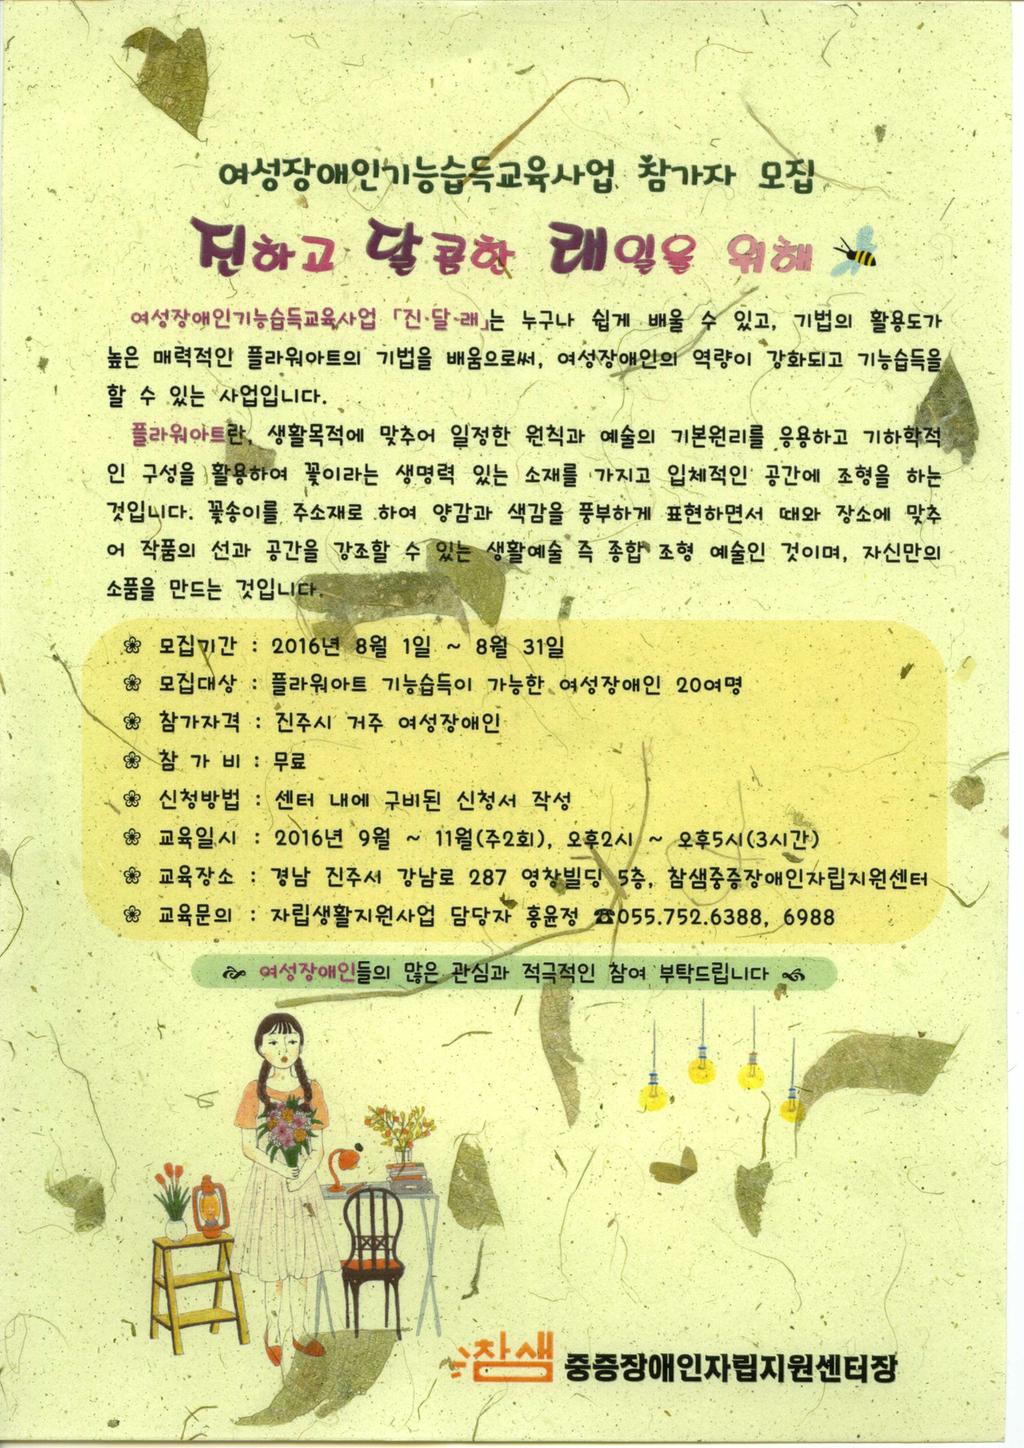 여성장애인기능습득교육사업 참가자 모집
진하고 달콤한 래일을 위해
여성장애인기능습득교육사업 「진·달·래」는 누구나 쉽게 배울 수 있고, 기법의 활용도가
높은 매력적인 플라워아트의 기법을 배움으로써, 여성장애인의 역량이 강화되고 기능습득을
할 수 있는 사업입니다.
플라워아트란, 생활목적에 맞추어 일정한 원칙과 예술의 기본원리를 응용하고 기하학적
인 구성을 활용하여 꽃이라는 생명력 있는 소재를 가지고 입체적인 공간에 조형을 하는
것입니다. 꽃송이를 주소재로 하여 양감과 색감을 풍부하게 표현하면서 때와 장소에 맞추
어 작품의 선과 공간을 강조할 수 있는 생활예술 즉 종합 조형 예술인 것이며, 자신만의
소품을 만드는 것입니다.
❀ 모집기간 : 2016년 8월 1일 ~ 8월 31일
❀ 모집대상 : 플라워아트 기능습득이 가능한 여성장애인 20여명
❀ 참가자격 : 진주시 거주 여성장애인
❀ 참 가 비 : 무료
❀ 신청방법 : 센터 내에 구비된 신청서 작성
❀ 교육일시 : 2016년 9월 ~ 11월(주2회), 오후2시 ~ 오후5시(3시간)
❀ 교육장소 : 경남 진주서 강남로 287 영창빌딩 5층, 참샘중증장애인자립지원센터
❀ 교육문의 : 자립생활지원사업 담당자 홍윤정 ☎055.752.6388, 6988
여성장애인들의 많은 관심과 적극적인 참여 부탁드립니다
참샘 중증장애인자립지원센터장